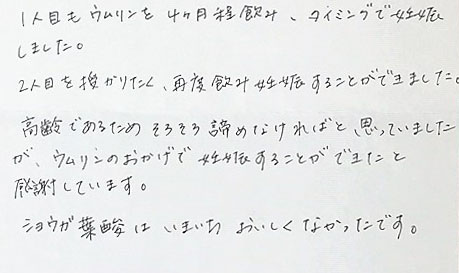 1人目もウムリンを4ヶ月程飲み、タイミングで妊娠
しました。
2人目を授かりたく、再度飲み妊娠することができました。
高齢であるためそろそろ諦めなければと思っていました
が、ウムリンのおかげで妊娠することができたと
感謝しています。
ショウガ葉酸はいまいちおいしくなかったです。